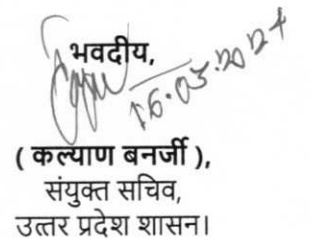 भवदीय,
16.03.2024
( कल्याण बनर्जी ),
संयुक्त सचिव,
उत्तर प्रदेश शासन।